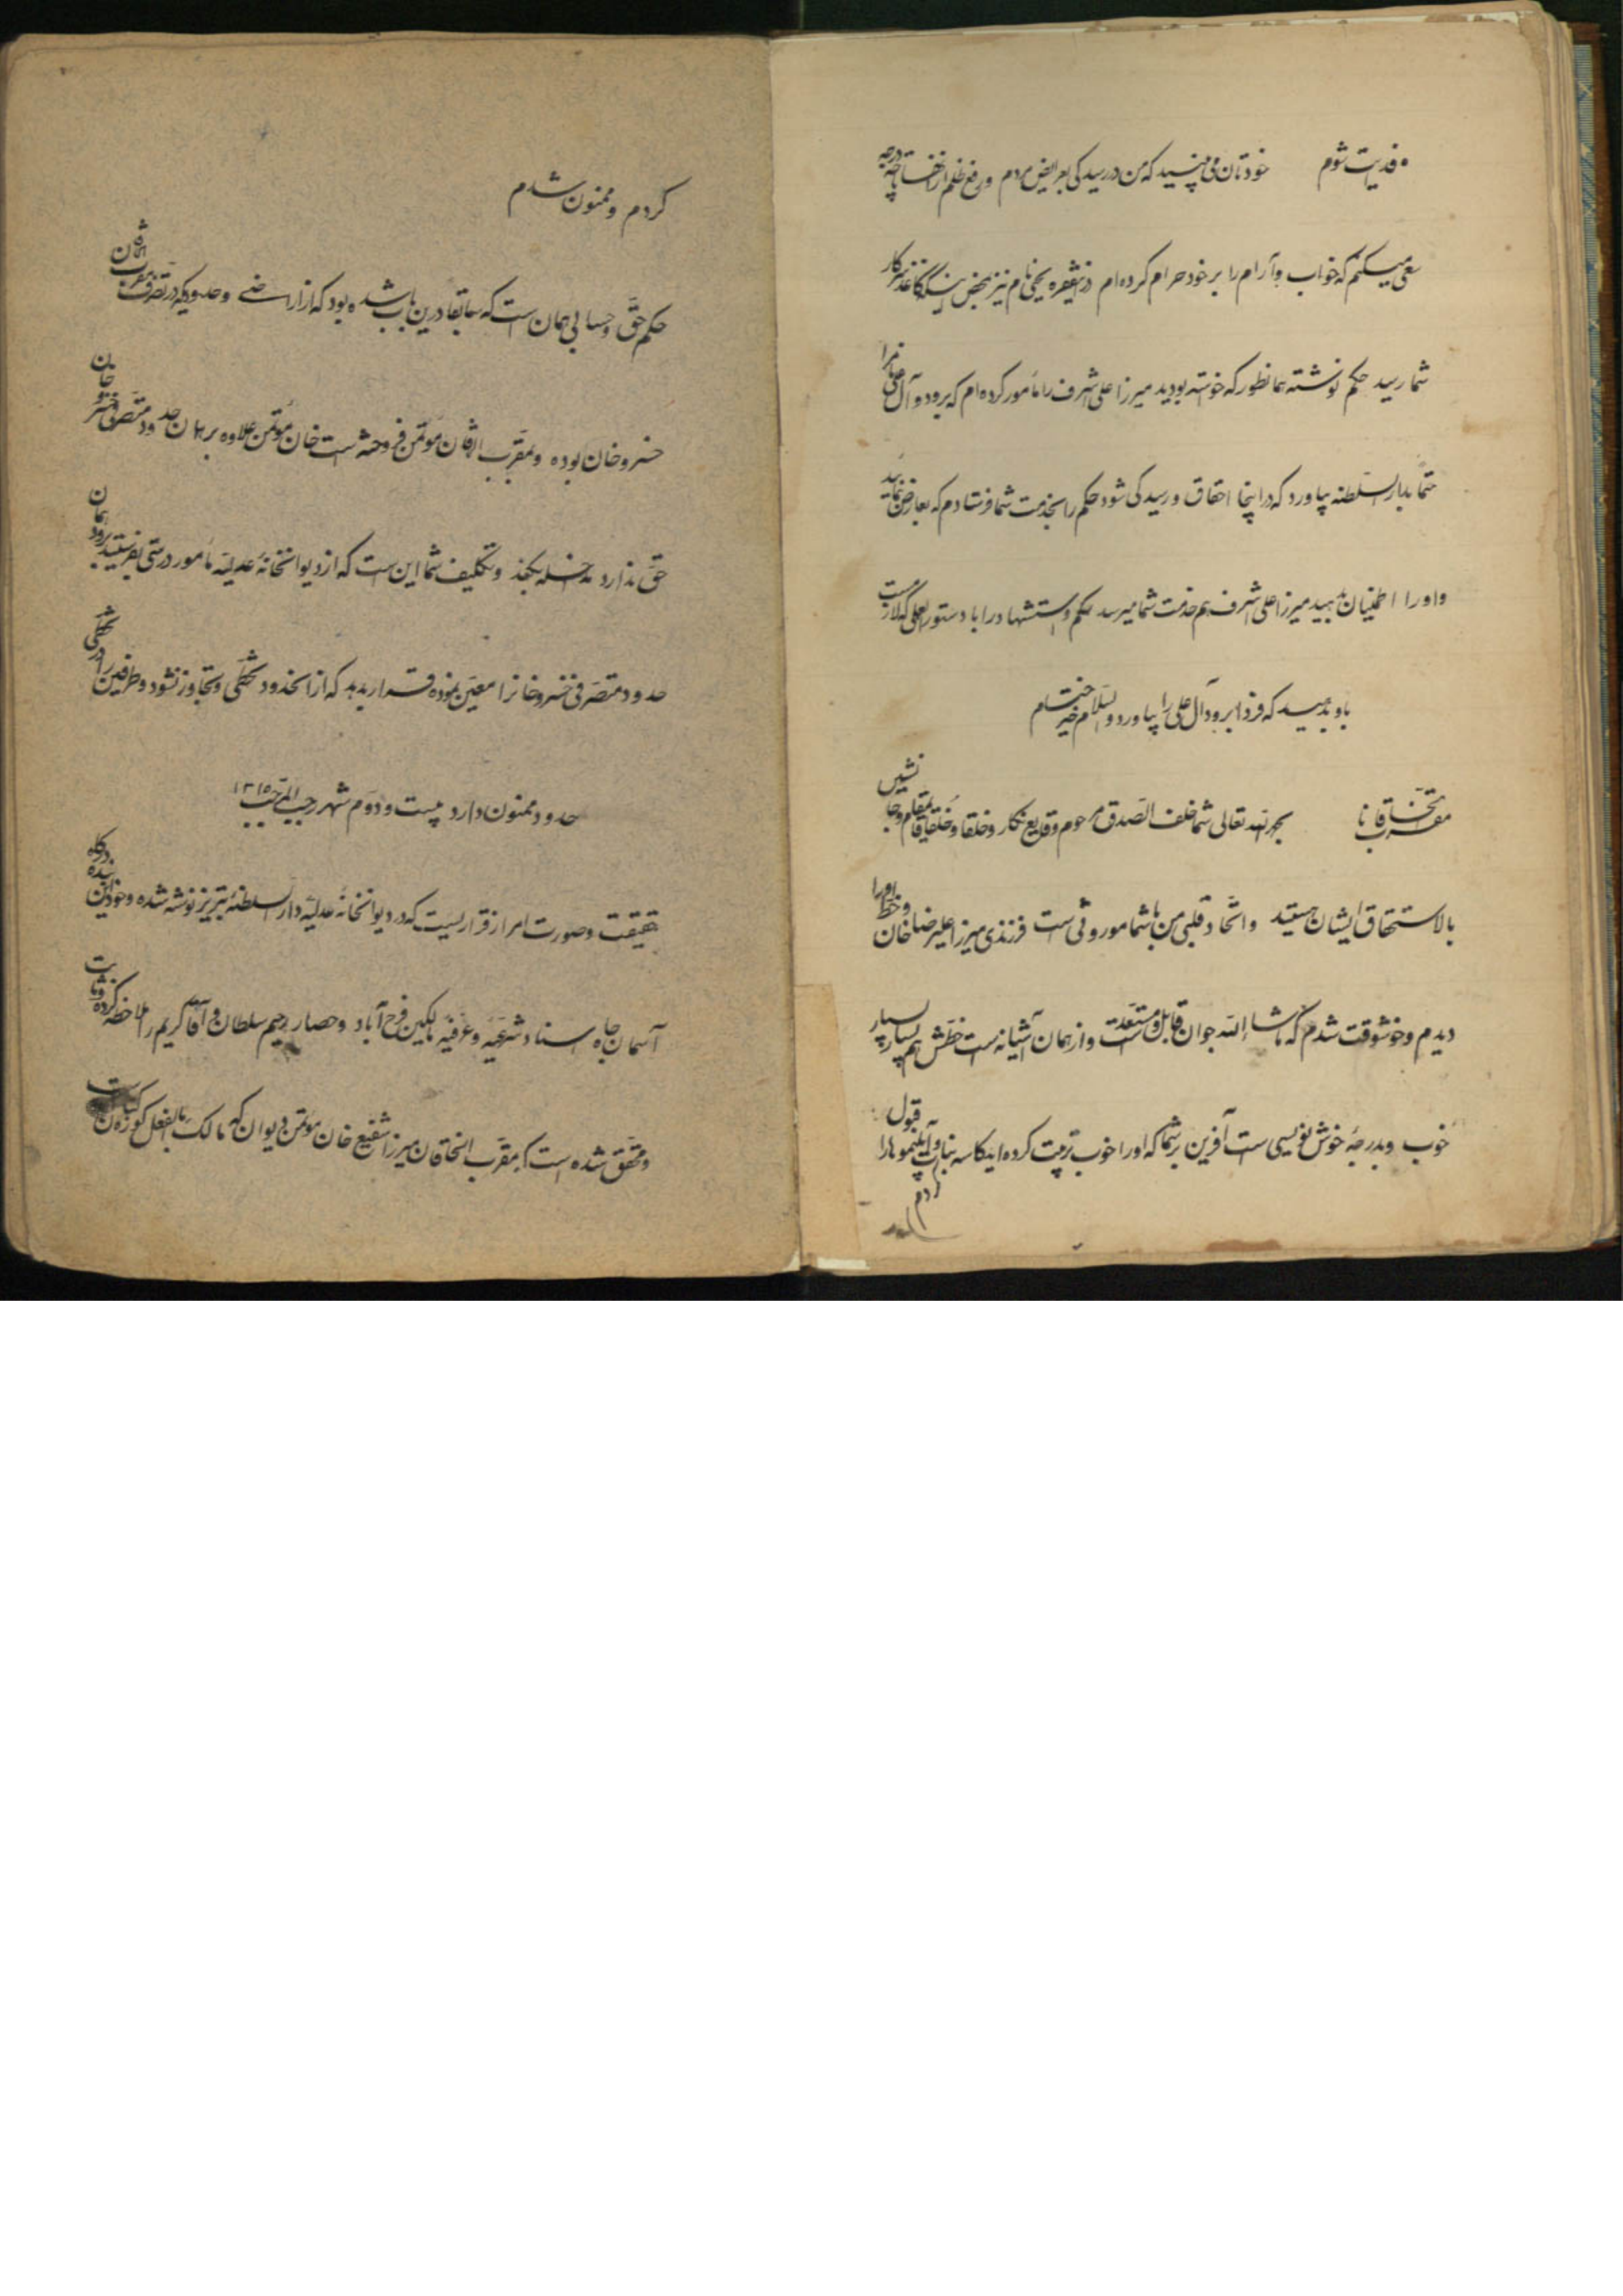 فدیت شوم خودتان می بینید که من در رسیدگی بعرایض مردم و رفع ظلم از ضعفا تا چه درجه
سعی میکنم که خواب و آرام را بر خود حرام کرده ام درینفقره یحیی نام نیز بمحض اینکه کاغذ سرکار
شما رسید حکم نوشته همانطور که خواسته بودید میرزا علی اشرف را مأمور کرده ام که برود و آل علی نام را
حتماً بدار السلطنه بیاورد که در اینجا احقاق و رسیدگی شود حکم را بخدمت شما فرستادم که بعارض بنمائید
و او را اطمینان بدهید میرزا علی اشرف هم خدمت شما میرسد حکم و استشهاد را با دستور العملی که لازمست
باو بدهید که فردا برود آل علی را بیاورد والسلام خیر ختام
مقرب الخاقانا بحمد الله تعالی شما خلف الصدق مرحوم وقایع نگار و خلقا و خُلقا قایمقام و جانشین
بالاستحقاق ایشان هستید و اتحاد قلبی من با شما موروثی است فرزندی میرزا علیرضا خان و خط او را
دیدم و خوشوقت شدم که ماشاء الله جوان قابل و مستعدیست و از همان آشیانه است خطش هم بسیار بسیار
خوب و بدرجهٔ خوش نویسی است آفرین بر شما که او را خوب تربیت کرده اید کاسه نبات و آبلیمو ها را قبول
کردم و ممنون شدم
حکم حق و حسابی همان است که سابقا درین باب شده بود که از اراضی و حدودیکه در تصرف مقرب الخاقان
خسرو خان بوده و بمقرب الخاقان مؤتمن فروخته است خان مؤتمن علاوه بر همان حدود متصرفی خسرو خان
حق ندارد مداخله بکند و تکلیف شما این است که از دیوانخانهٔ عدلیه مأمور درستی بفرستید برود همان
حدود متصرفی خسرو خانرا معین نموده قرار بدهد که از انحدود تخطی و تجاوز نشود و طرفین را در تخطی
حدود ممنون دارد بیست و دوم شهر رجب المرجب ۱۳۱۵
حقیقت و صورت امر از قراریست که در دیوانخانهٔ عدلیهٔ دار السلطنهٔ تبریز نوشته شده و خود این بنده درگاه
آسمان جاه اسناد شرعیه و عرفیه مالکین فرح آباد و حصار رحیم سلطان و آقا کریم را ملاحظه کرده و ثابت
و محقق شده است که مقرب الخاقان میرزا شفیع خان مؤتمن دیوان که مالک بالفعل کوزه کنانست